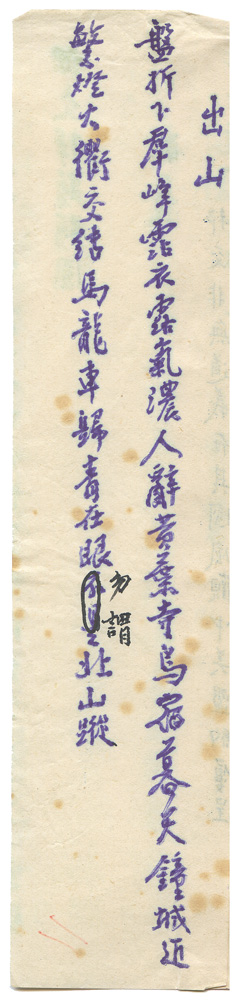 出山
盤折下羣峰霑衣露氣濃人辭黄葉寺鳥宿暮天鐘城近
繁燈火衢交結馬龍車歸青在眼勿謂北山蹤